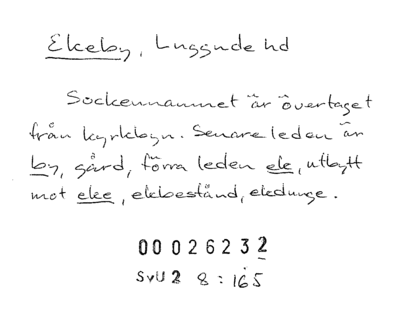 Ekeby, Luggude hd
Sockennamnet är övertaget
från kyrkbyn. Senare leden är
by, gård, förra leden ek, utbytt
mot eke, ekbestånd, ekdunge.
00026232
SvU 2 8:165